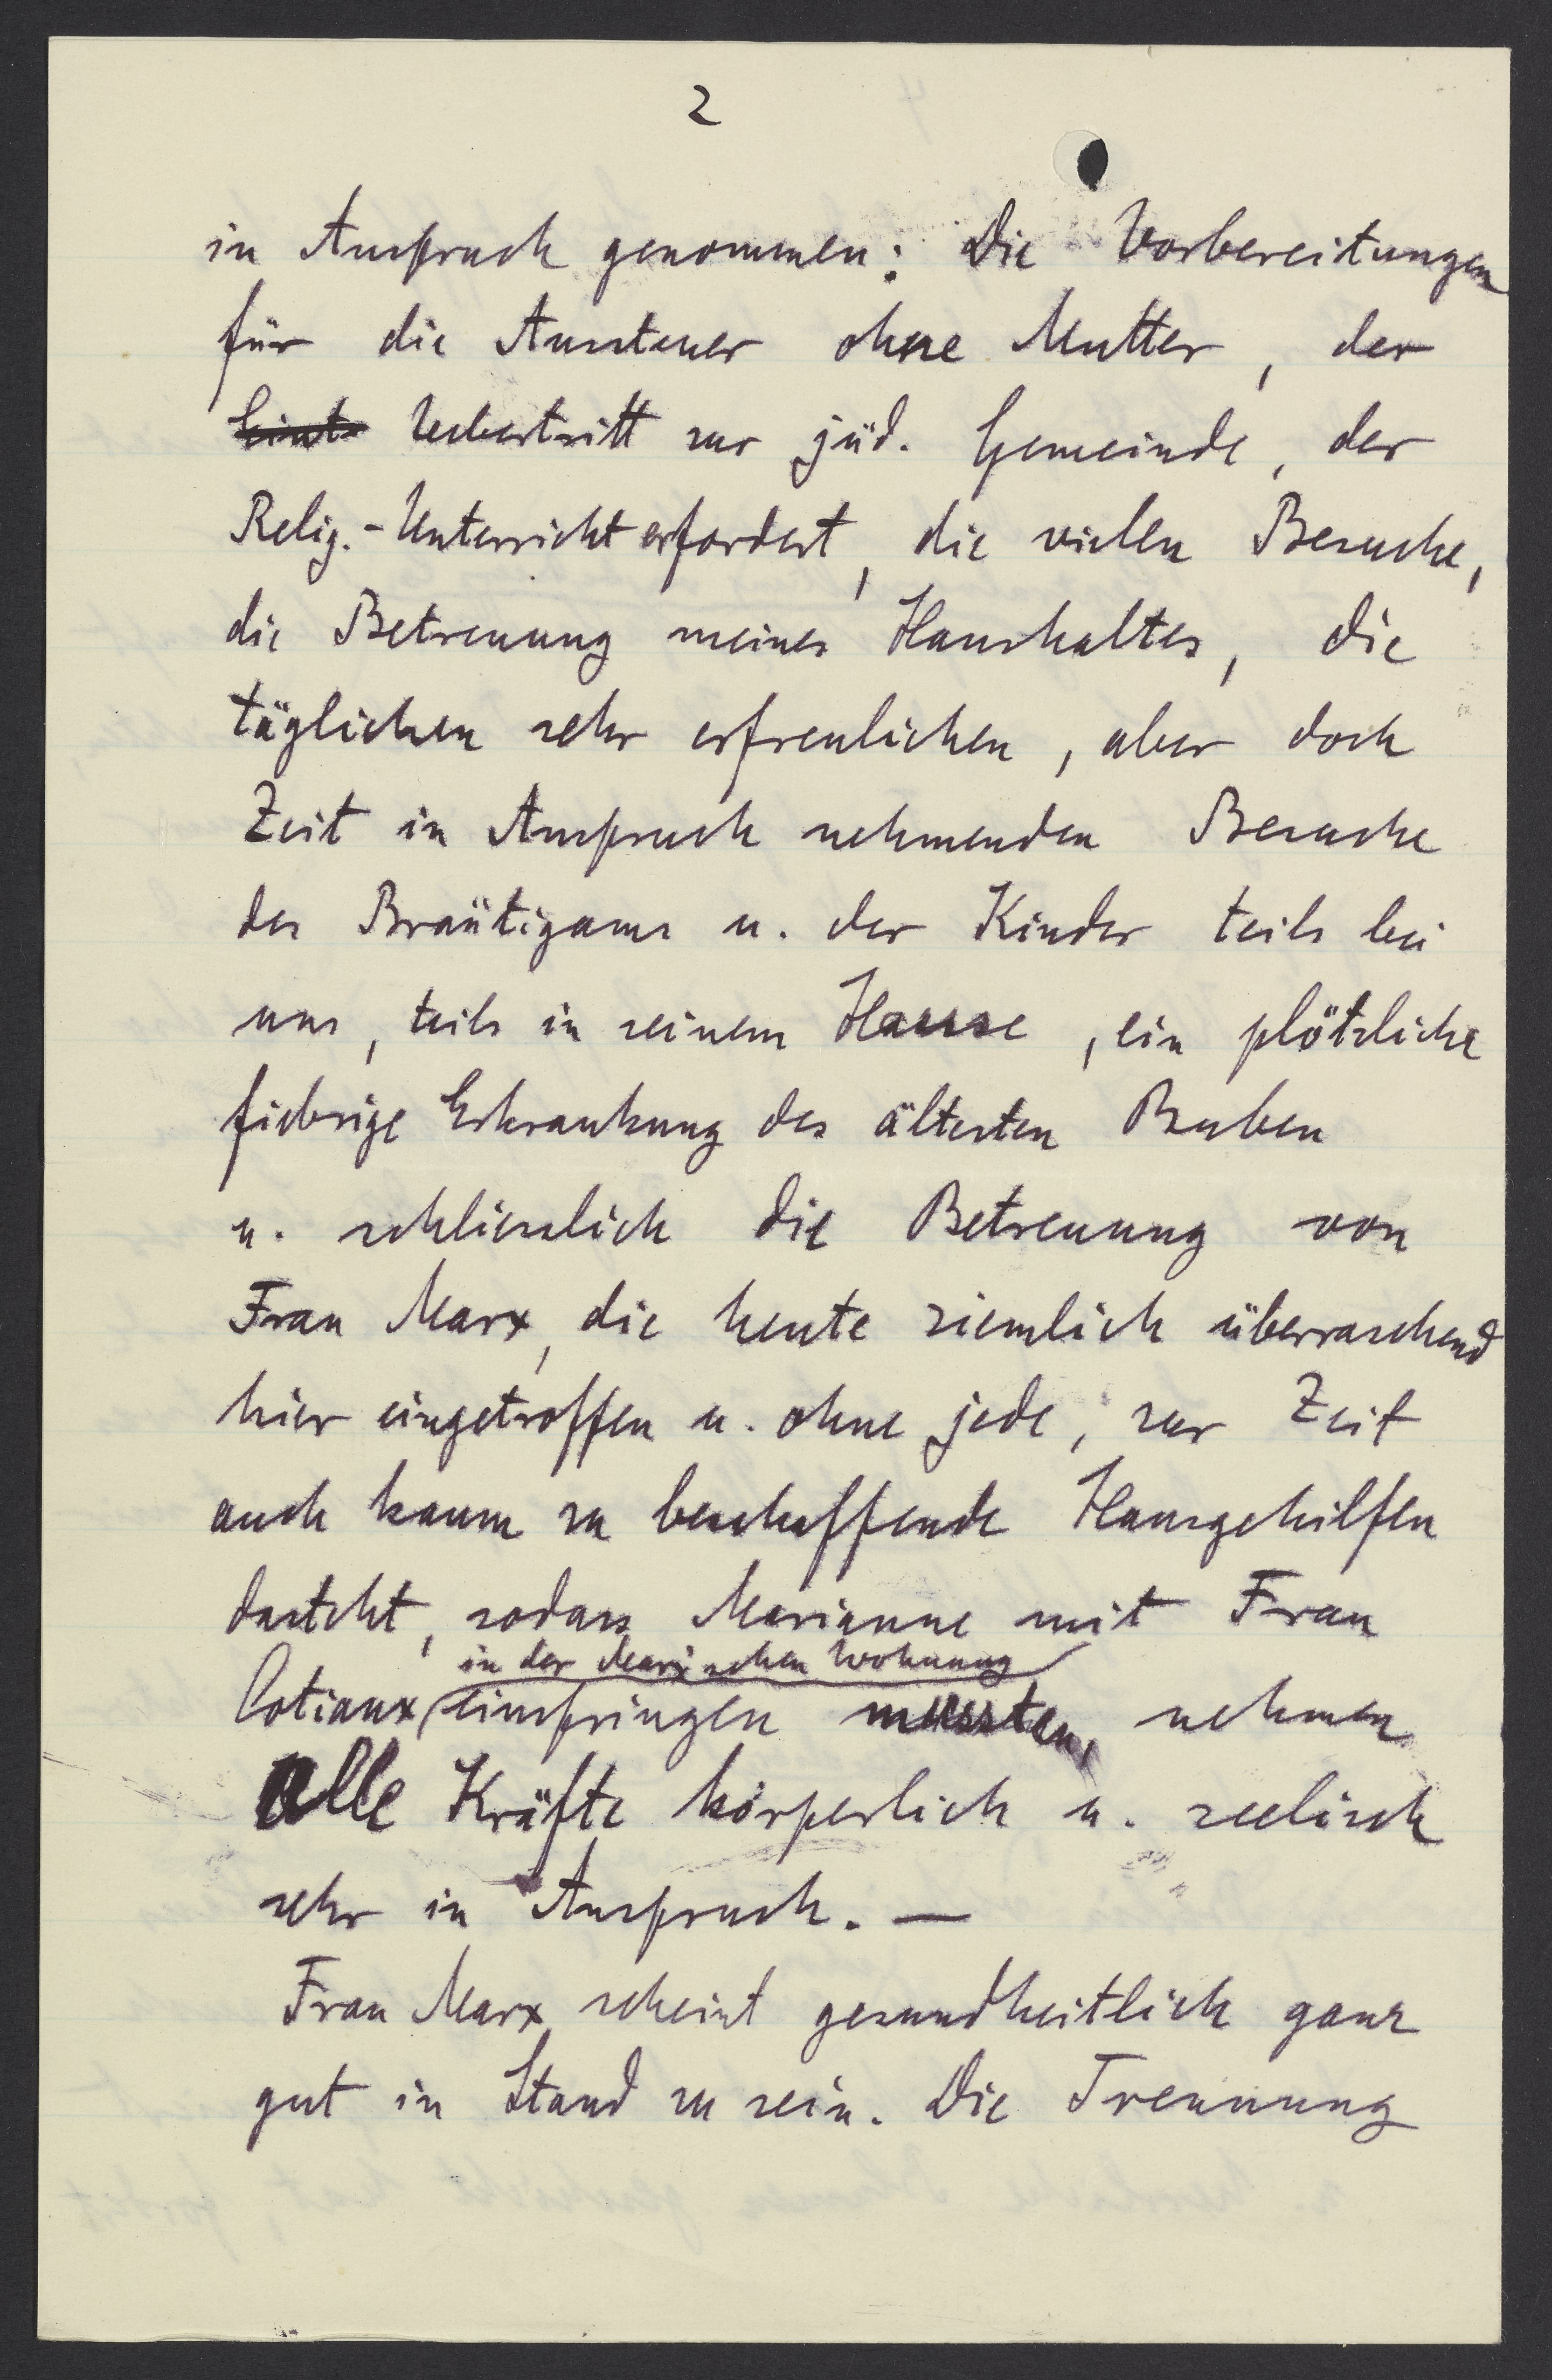 2
in Anspruch genommen: Die Vorbereitungen
für die Aussteuer ohne Mutter, der
Eint Uebertritt zur jüd. Gemeinde, der
Relig.-Unterricht erfordert, die vielen Besuche,
die Betreuung meines Haushaltes, die
täglichen sehr erfreulichen, aber doch
Zeit in Anspruch nehmenden Besuche
des Bräutigams u. der Kinder teils bei
uns, teils in seinem Hause, ein plötzliche
fiebrige Erkrankung des ältesten Buben
u. schliesslich die Betreuung von
Frau Marx, die heute ziemlich überraschend
hier eingetroffen u. ohne jede, zur Zeit
auch kaum zu beschaffende Hausgehilfen
dasteht, sodass Marianne mit Frau
in der Marxschen Wohnung
Cotiaux einspringen mussten, nehmen
alle Kräfte körperlich u. seelisch
sehr in Anspruch. —
Frau Marx scheint gesundheitlich ganz
gut in Stand zu sein. Die Trennung